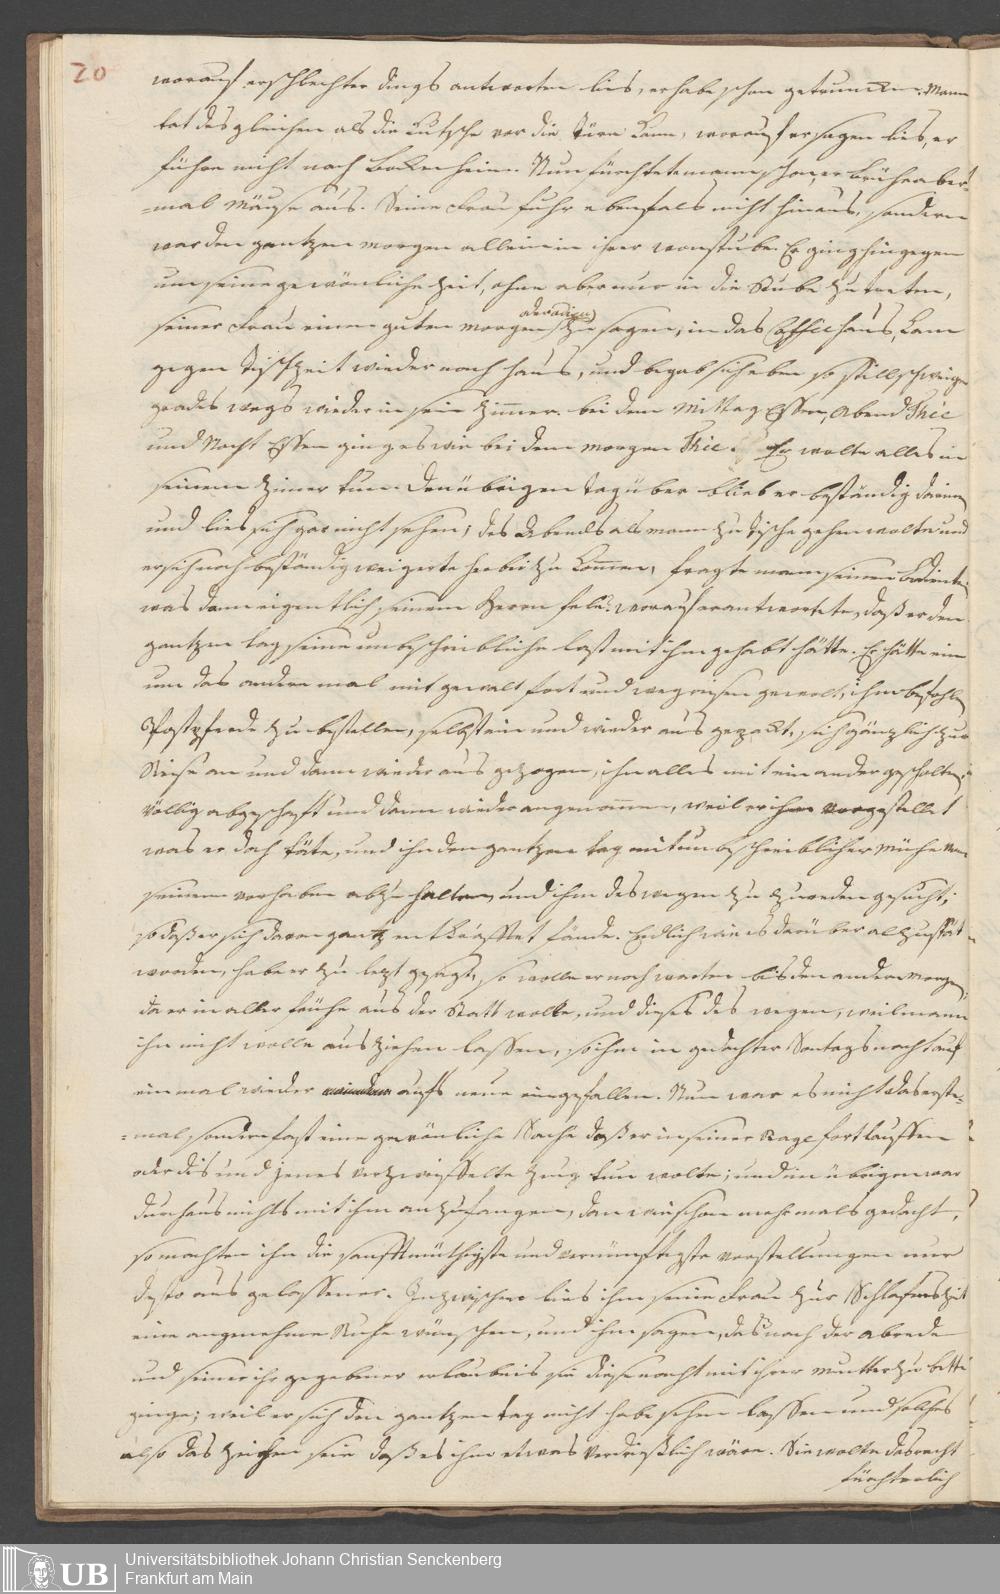 20
worauf er schlechter dings antworten lies, er habe schon getruncken. Mann
tat des gleichen als die Kutsche vor die Türe kam, worauf er sagen lies, er
führe nicht nach Bockenheim. Nun fürchtete mann schon, er brühe aber¬
¬mal Mäuse aus. Seine Frau fuhr ebenfals nicht hinaus, sondern
war den gantzen morgen allein in ihrer wonstube. Er ging hingegen
um seine gewönliche Zeit, ohne aber nur in die Stube zu treten,
oder adieu
seiner Frau einen guten morgen zu sagen, in das Coffeehaus, kam
gegen Tischzeit wieder nach haus, und begab sich eben so stillschweigend
grades wegs wieder in sein Zimmer. bei dem Mittag Essen, Abend Thée
und Nacht Essen ging es wie bei dem morgen Thée. Er wolte alles in
seinem Zimer tun. Den übrigen tag über blieb er beständig darinn
und lies sich gar nicht sehen; des Abends als mann zu Tische gehen wolte und
er sich noch beständig weigerte herbei zu kommen, fragte mann seinen Bedienten
was dann eigentlich seinem Herrn fele? worauf er antwortete, daß er den
gantzen tag seine unbeschreibliche last mit ihm gehabt hätte. Er hätte ein
um das andere mal mit gewalt fort und wegreisen gewolt, ihm befohlen
Postpferde zu bestellen, selbst ein und wieder aus gepackt, sich gäntzlich zur
Reise an und dann wieder aus gezogen, ihn alles mit einander gescholten,
völlig abgeschafft und dann wieder angenommen, weil er ihm vorgestellet
was er doch täte, und ihn den gantzen tag mit unbeschreiblicher Mühe von
seinem vorhaben abzuhalten und ihm deswegen zu zureden gesucht;
so daß er sich davon gantz entkräfftet fände. Endlich wie es darüber alzuspät
worden, habe er zu letzt gesagt, so wolle er noch warten bis den andern Morgen,
da er in aller frühe aus der Statt wolle, und dieses des wegen, weil mann
ihn nicht wolle ausziehen lassen, so ihm in gedachter Sontags nacht auf
einmal wieder aufs neue eingefallen. Nun war es nicht das erste¬
¬mal, sondern fast eine gewönliche Sache daß er in seiner Rage fortlauffen
oder dis und jenes verzweiffelte Zeug tun wolte; und im übrigen war
durchaus nichts mit ihm anzufangen, dan wie schon mehrmals gedacht,
so machten ihn die sanfftmüthigste und vernünfftigste vorstellungen nur
desto ausgelassener. Inzwischen lies ihm seine Frau zur Schlafenszeit
eine angenehme Ruhe wünschen, und ihm sagen, das nach der abrede
und seiner ihr gegebener erlaubnis sie diese nacht mit ihrer Mutter zu bette
ginge; weil er sich den gantzen tag nicht habe sehen lassen und solches
also das Zeichen sein daß es ihm etwas verdrießlich wäre. Sie wolte das recht
fürchterlich
Universitätsbibliothek Johann Christian Senckenberg
Frankfurt am Main
UB